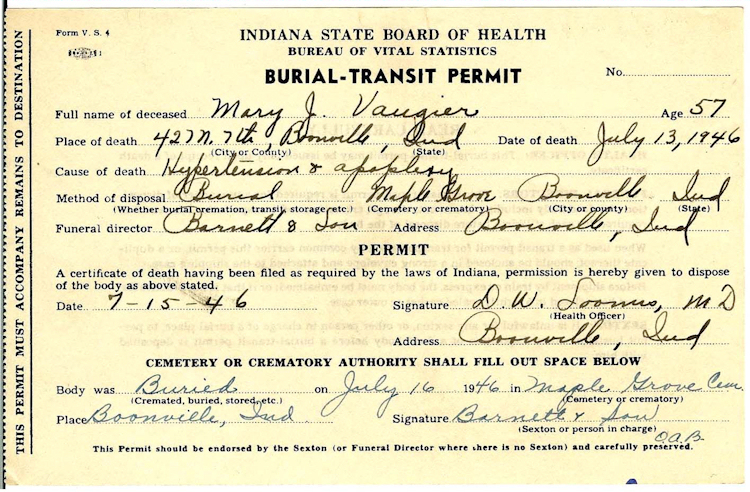 Form V. S. 4
INDIANA STATE BOARD OF HEALTH
BUREAU OF VITAL STATISTICS
BURIAL-TRANSIT PERMIT
No.
Full name of deceased Mary J. Vaugier Age 57
Place of death 427 N. 7th, Boonville, Ind Date of death July 13, 1946
(City or County) (State)
Cause of death Hypertension & apoplexy
Method of disposal Burial Maple Grove Boonville Ind
(Whether burial cremation, transit, storage etc.) (Cemetery or crematory) (City or county) (State)
Funeral director Barnett & Son Address Boonville, Ind
PERMIT
A certificate of death having been filed as required by the laws of Indiana, permission is hereby given to dispose
of the body as above stated.
Date 7-15-46 Signature D. W. Loomis, MD
(Health Officer)
Address Boonville, Ind
CEMETERY OR CREMATORY AUTHORITY SHALL FILL OUT SPACE BELOW
Body was Buried on July 16 1946 in Maple Grove Cem
(Cremated, buried, stored, etc.) (Cemetery or crematory)
Place Boonville, Ind. Signature Barnett & Son
(Sexton or person in charge)
O.A.B.
This Permit should be endorsed by the Sexton (or Funeral Director where there is no Sexton) and carefully preserved.
THIS PERMIT MUST ACCOMPANY REMAINS TO DESTINATION